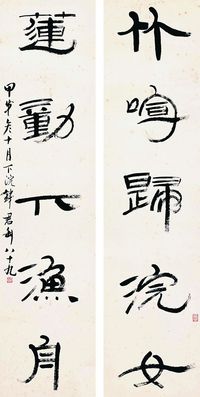 竹喧歸浣女
蓮動下漁舟
十月下浣 君 八十九